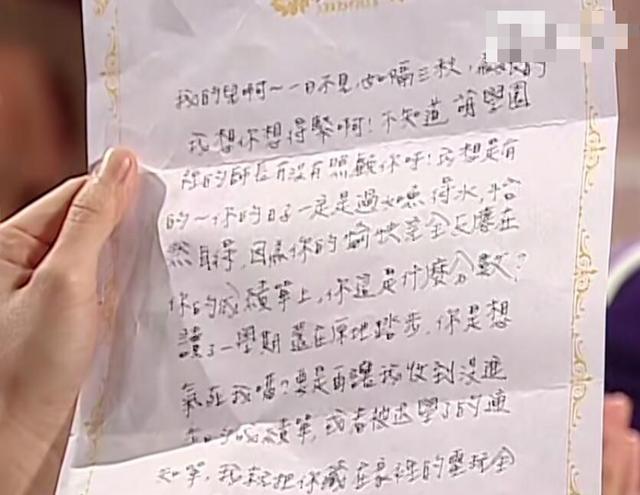 我的兒啊～一日不見，如隔三秋，
我想你想得緊啊！不知道 前學園
裡的師長有沒有照顧你呀！我想是有
的～你的日子一定是過如魚得水，怡
然自得，因為你的愉快完全反應在
你的成績單上，你這是什麼分數？
讀了一學期還在原地踏步，你是想
氣死我嗎？要是再讓我收到沒進
步的成績單，或者被退學了的通
知單，我就把你藏在家裡的電玩全